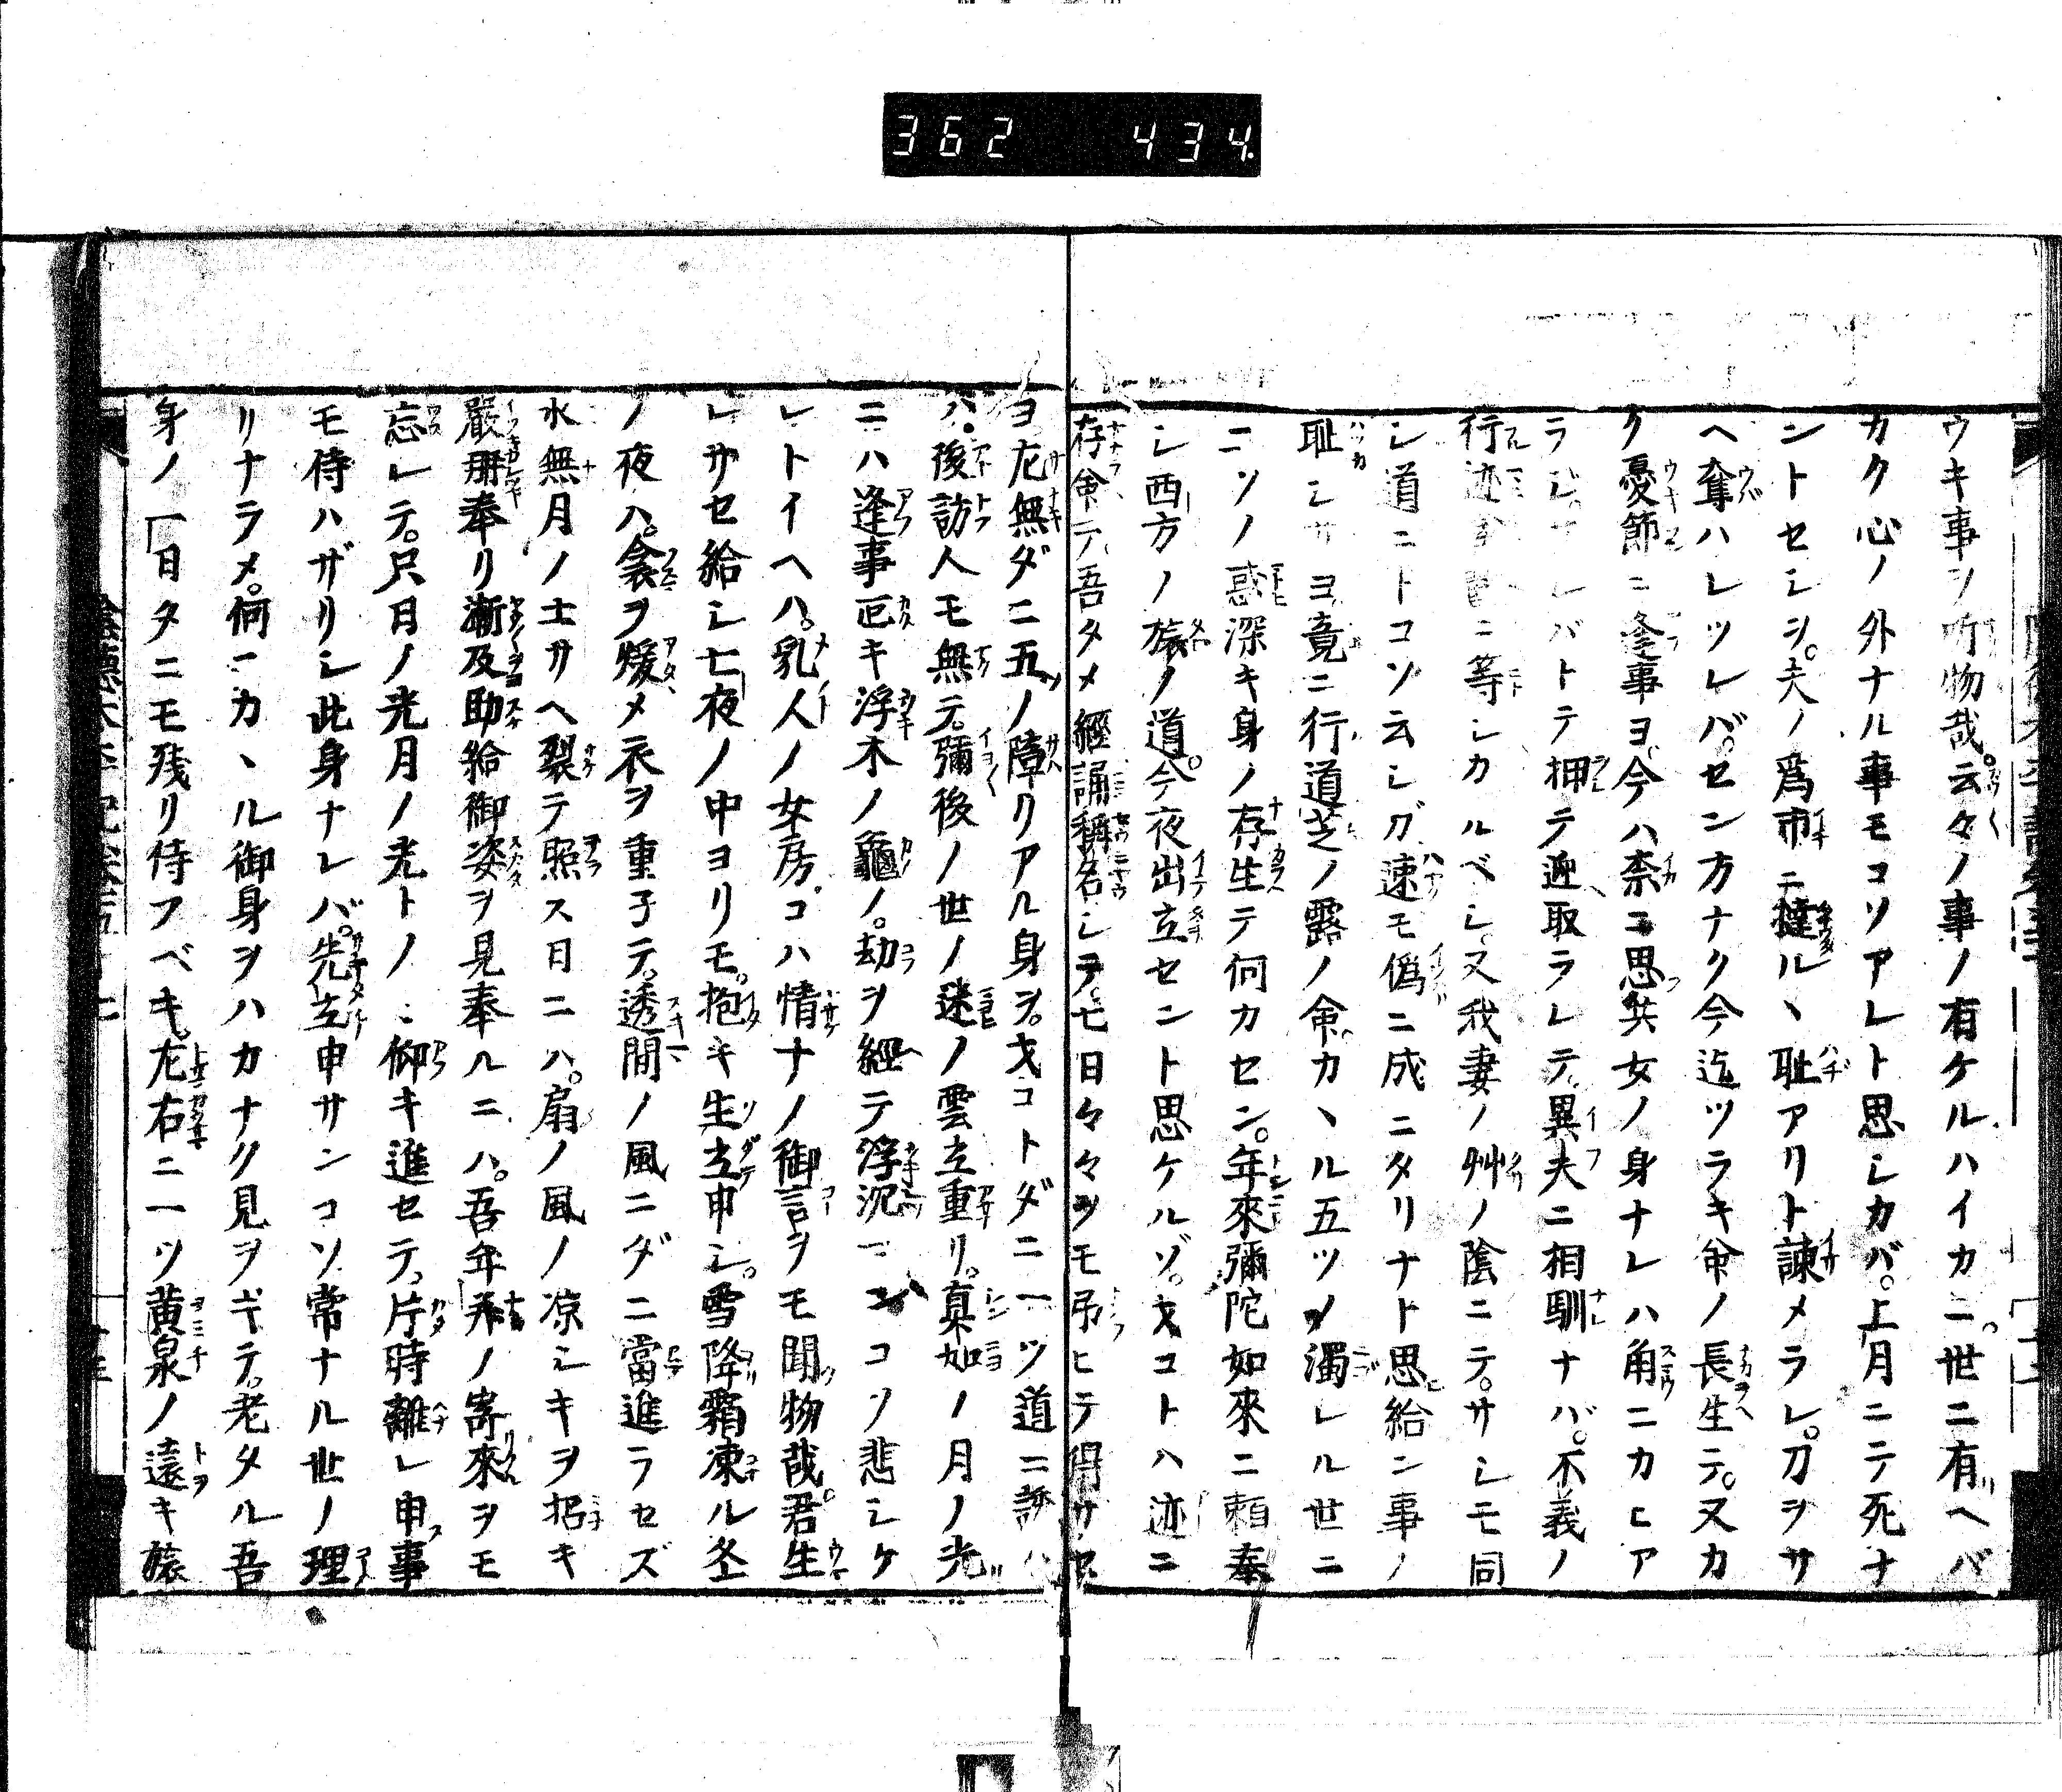 362 434
ウキ事ヲ听物哉。云々ノ事ノ有ケルハイカニ。世ニ有ヘバ
カク心ノ外ナル事モコソアレト思シカバ。上月ニテ死ナ
ントセシヲ。夫ノ爲市ニ撻ルヽ耻アリト諫メラレ。刀ヲサ
ヘ奪ハレツレバ。セン方ナク今迄ツラキ命ノ長生テ。又カ
ク憂節ニ逢事ヨ。今ハ奈ニ思共女ノ身ナレハ角ニカヒア
ラレバトテ押テ迎取ラレテ。異夫ニ相馴ナバ。不義ノ
行迹ニ等シカルベシ。又我妻ノ艸ノ陰ニテ。サシモ同
シ道ニトコソ云シガ速モ僞ニ成ニタリナト思給ン事ノ
耻シサヨ竟ニ行道芝ノ露ノ命。カヽル五ツノ濁レル世ニ
ニソノ惑深キ身ノ存生テ何カセン。年來彌陀如來ニ頼奉
シ西方ノ旅ノ道。今夜出立セント思ケルゾ。夂コトハ迹ニ
存命テ。吾タメ經誦稱名シテ。七日々々ヲモ吊ヒテ得サセ
ヨ尤無ダニ五ノ障リアル身ヲ。夂コトダニ一ツ道ニ
ハ。後訪人モ無テ。彌後ノ世ノ迷ノ雲立重リ。真如ノ月ノ光
ニハ逢事叵キ浮木ノ龜ノ。劫ヲ經テ浮沉ーンコソ悲シケ
レトイヘハ。乳人ノ女房コハ情ナノ御言ヲモ聞物哉。君生
レサセ給シ七夜ノ中ヨリモ。抱キ生立申シ。雪降霜凍ル冬
ノ夜ハ。衾ヲ煖メ衣ヲ重子テ。透間ノ風ニダニ當進ラセズ
水無月ノ土サヘ裂テ照ス日ニハ。扇ノ風ノ凉シキヲ招キ
嚴册奉リ漸及助給御姿ヲ見奉ルニハ。吾年ノ寄來ヲモ
忘レテ。只日ノ光月ノ光トノミ仰キ進セテ。片時離レ申事
モ侍ハザリシ此身ナレバ。先立申サンコソ常ナル世ノ理
リナラメ。何ニカヽル御身ヲハカナク見ヲキテ。老タル吾
身ノ一日タニモ残リ侍フベキ。尤右ニ一ツ黄泉ノ遠キ旅